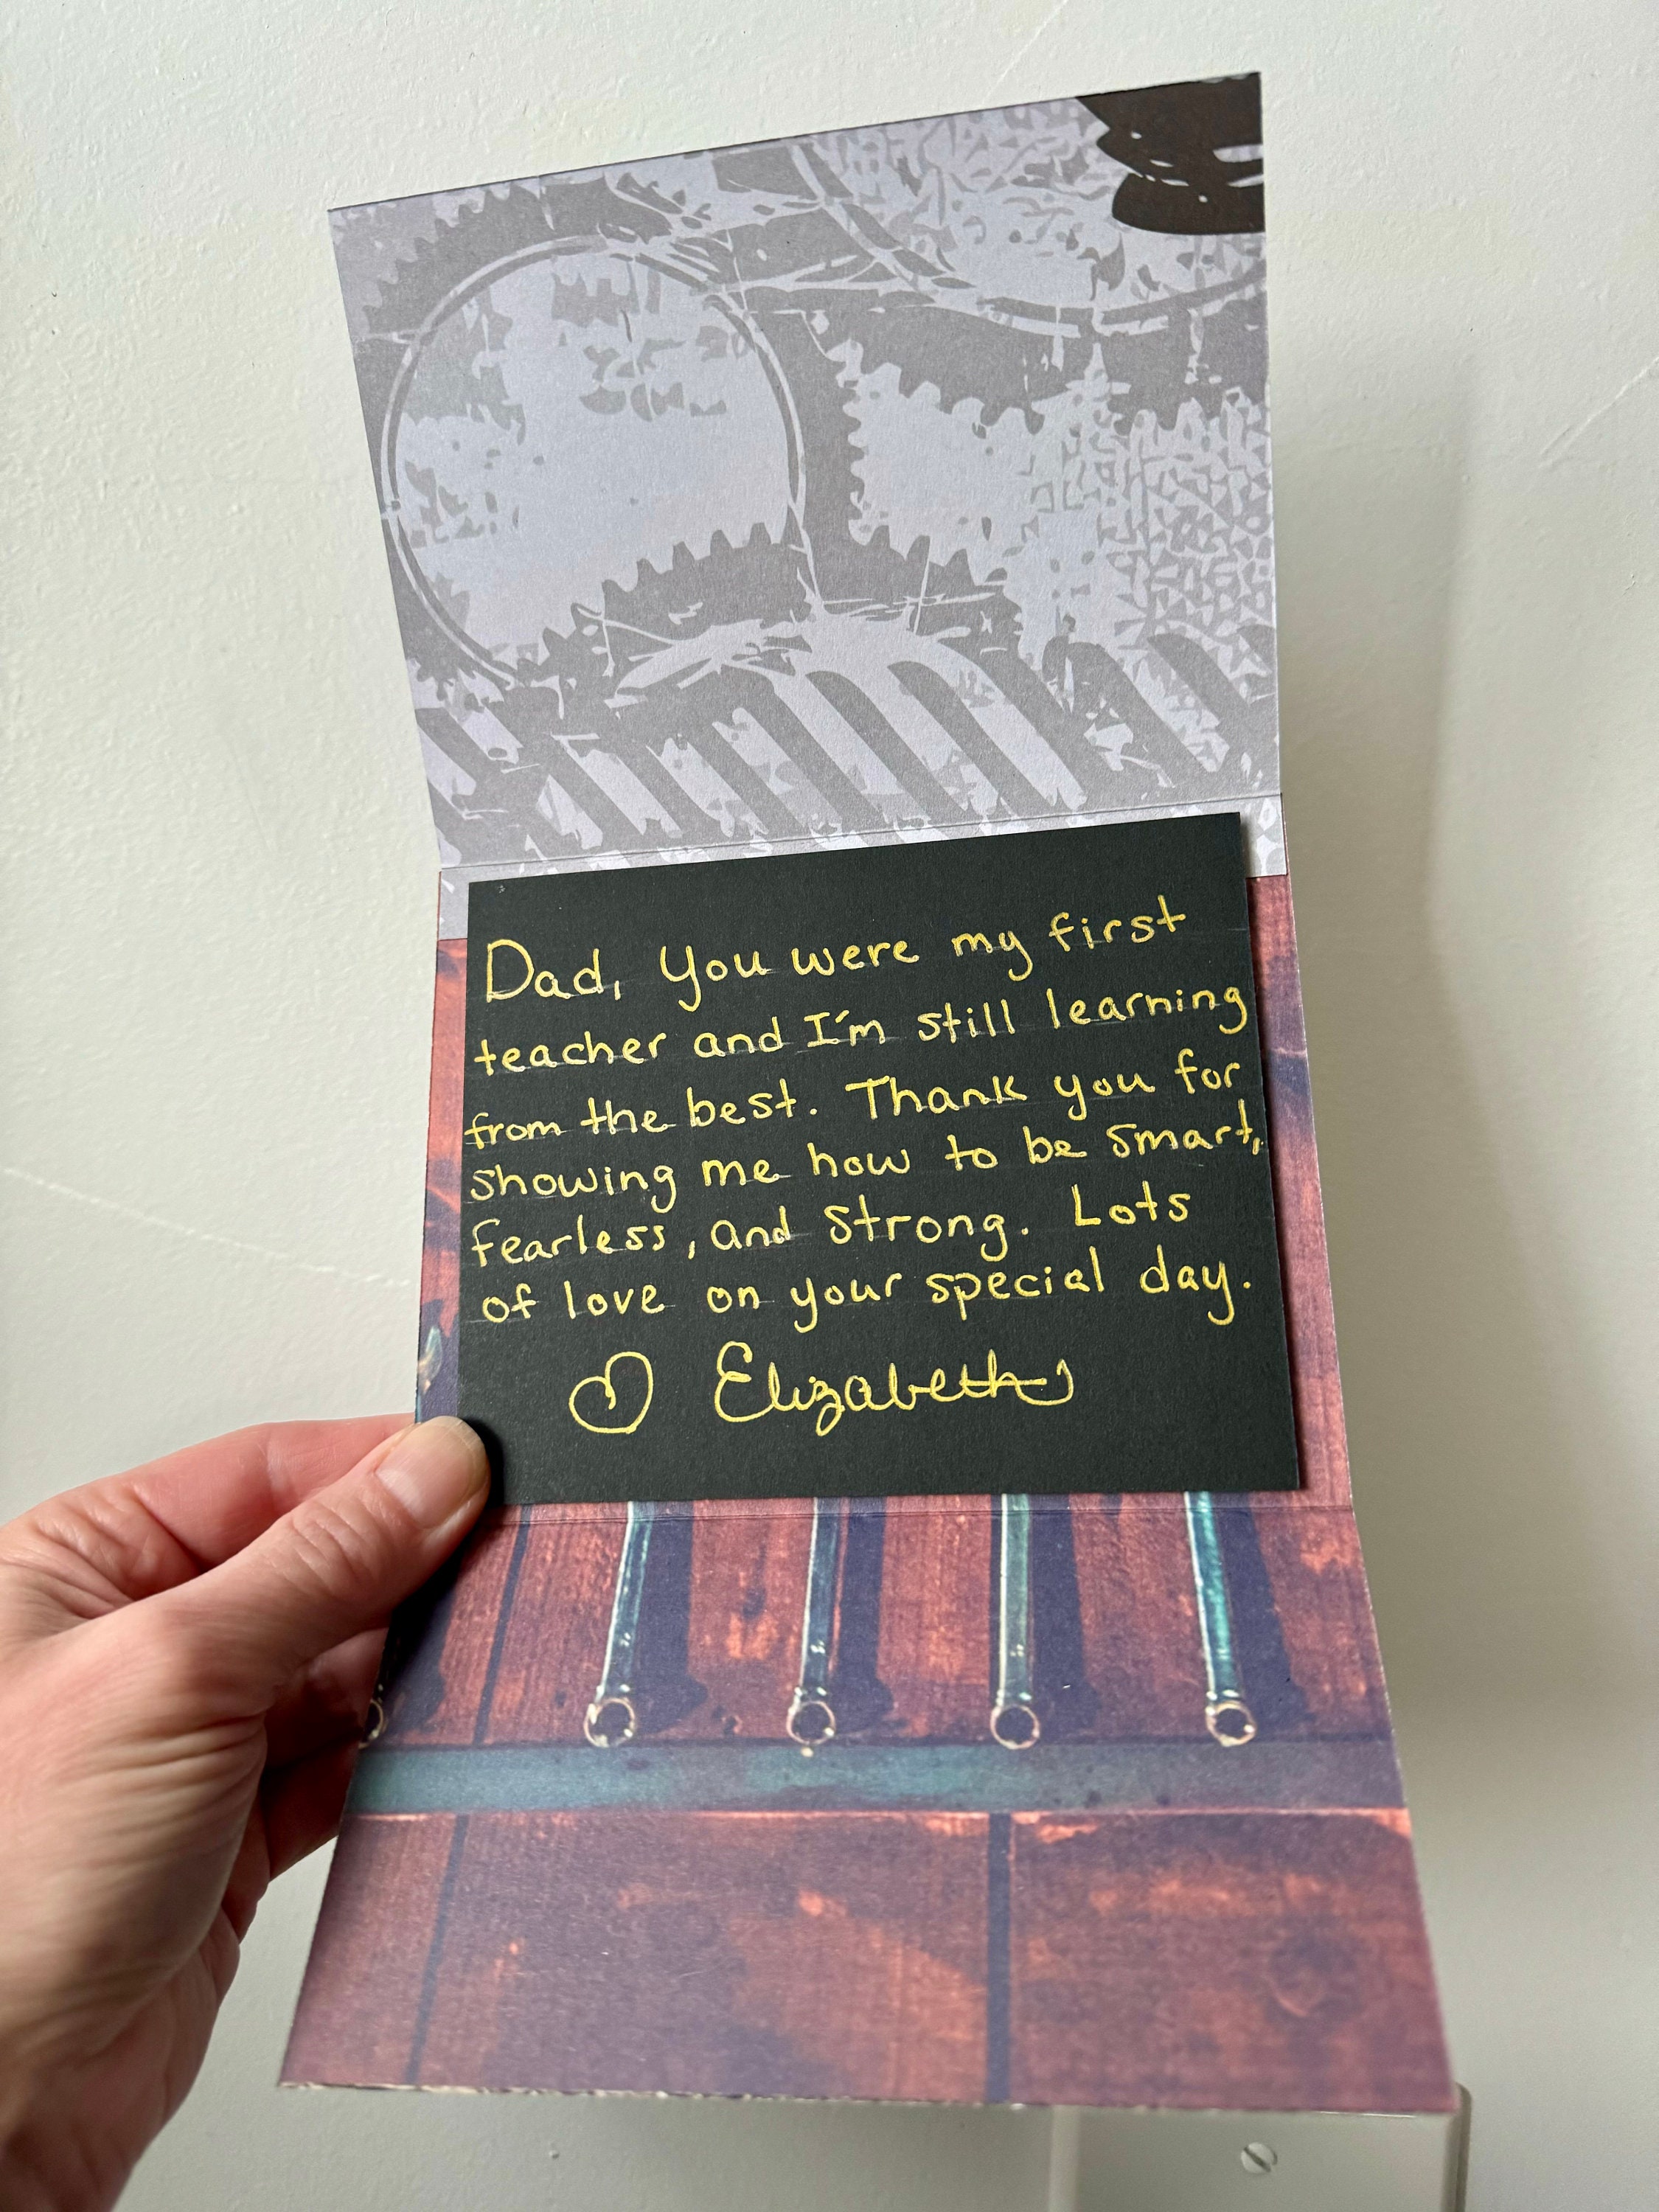 Dad, You were my first
teacher and I'm still learning
from the best. Thank you for
showing me how to be smart,
fearless, and strong. Lots
of love on your special day.
♡ Elizabeth